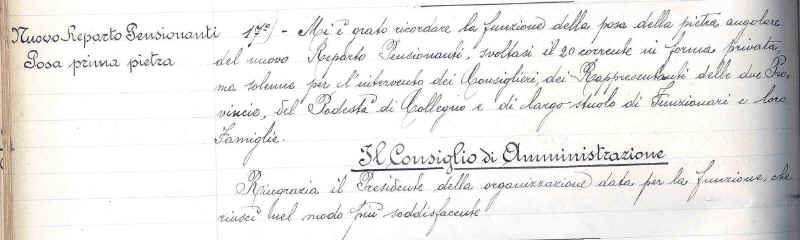 Nuovo Reparto Pensionanti
Posa prima pietra
17°) - Mi è grato ricordare la funzione della posa della pietra angolare
del nuovo Reparto Pensionanti, svoltasi il 20 corrente in forma privata,
ma solenne per l'intervento dei Consiglieri, dei Rappresentanti delle due Pro-
vincie, del Podestà di Collegno e di largo stuolo di Funzionari e loro
Famiglie.
Il Consiglio di Amministrazione
Ringrazia il Presidente della organizzazione data per la funzione, che
riuscì nel modo più soddisfacente